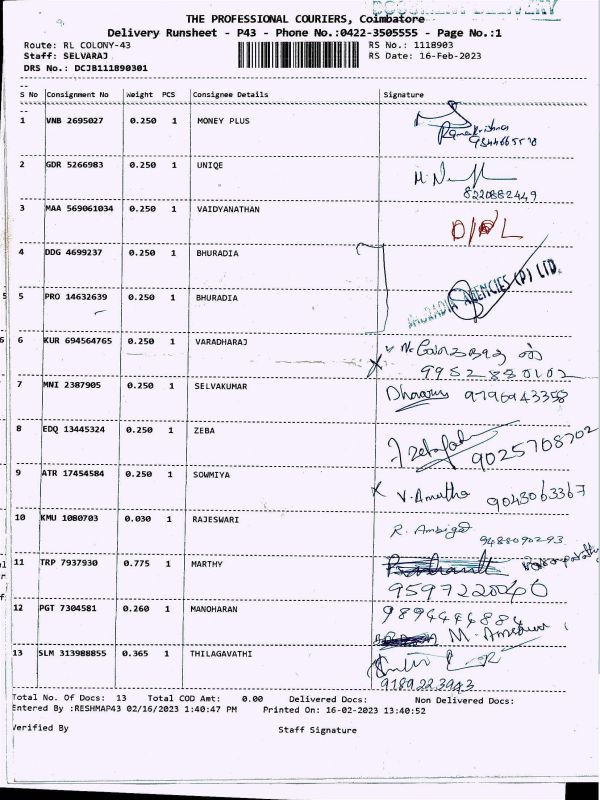 DOCUMENT DELIVERY
THE PROFESSIONAL COURIERS, Coimbatore
Delivery Runsheet - P43 - Phone No.:0422-3505555 - Page No.:1
Route: RL COLONY-43 RS No.: 1118903
Staff: SELVARAJ RS Date: 16-Feb-2023
DRS No.: DCJB111890301
S No Consignment No Weight PCS Consignee Details Signature
1 VNB 2695027 0.250 1 MONEY PLUS Ramakrishna
2 GDR 5266983 0.250 1 UNIQE
8220882449
3 MAA 569061034 0.250 1 VAIDYANATHAN
4 DDG 4699237 0.250 1 BHURADIA
5 PRO 14632639 0.250 1 BHURADIA BHURADIA AGENCIES (P) LTD.
6 KUR 694564765 0.250 1 VARADHARAJ
9952880102
7 MNI 2387905 0.250 1 SELVAKUMAR 9796943358
8 EDQ 13445324 0.250 1 ZEBA
9025708702
9 ATR 17454584 0.250 1 SOWMIYA V. Amutha 9043063367
10 KMU 1080703 0.030 1 RAJESWARI R. Ambiga
9488090293
11 TRP 7937930 0.775 1 MARTHY
9597220040
12 PGT 7304581 0.260 1 MANOHARAN 9894444884
13 SLM 313988855 0.365 1 THILAGAVATHI
9189223943
Total No. Of Docs: 13 Total COD Amt: 0.00 Delivered Docs: Non Delivered Docs:
Entered By :RESHMAP43 02/16/2023 1:40:47 PM Printed On: 16-02-2023 13:40:52
Verified By Staff Signature